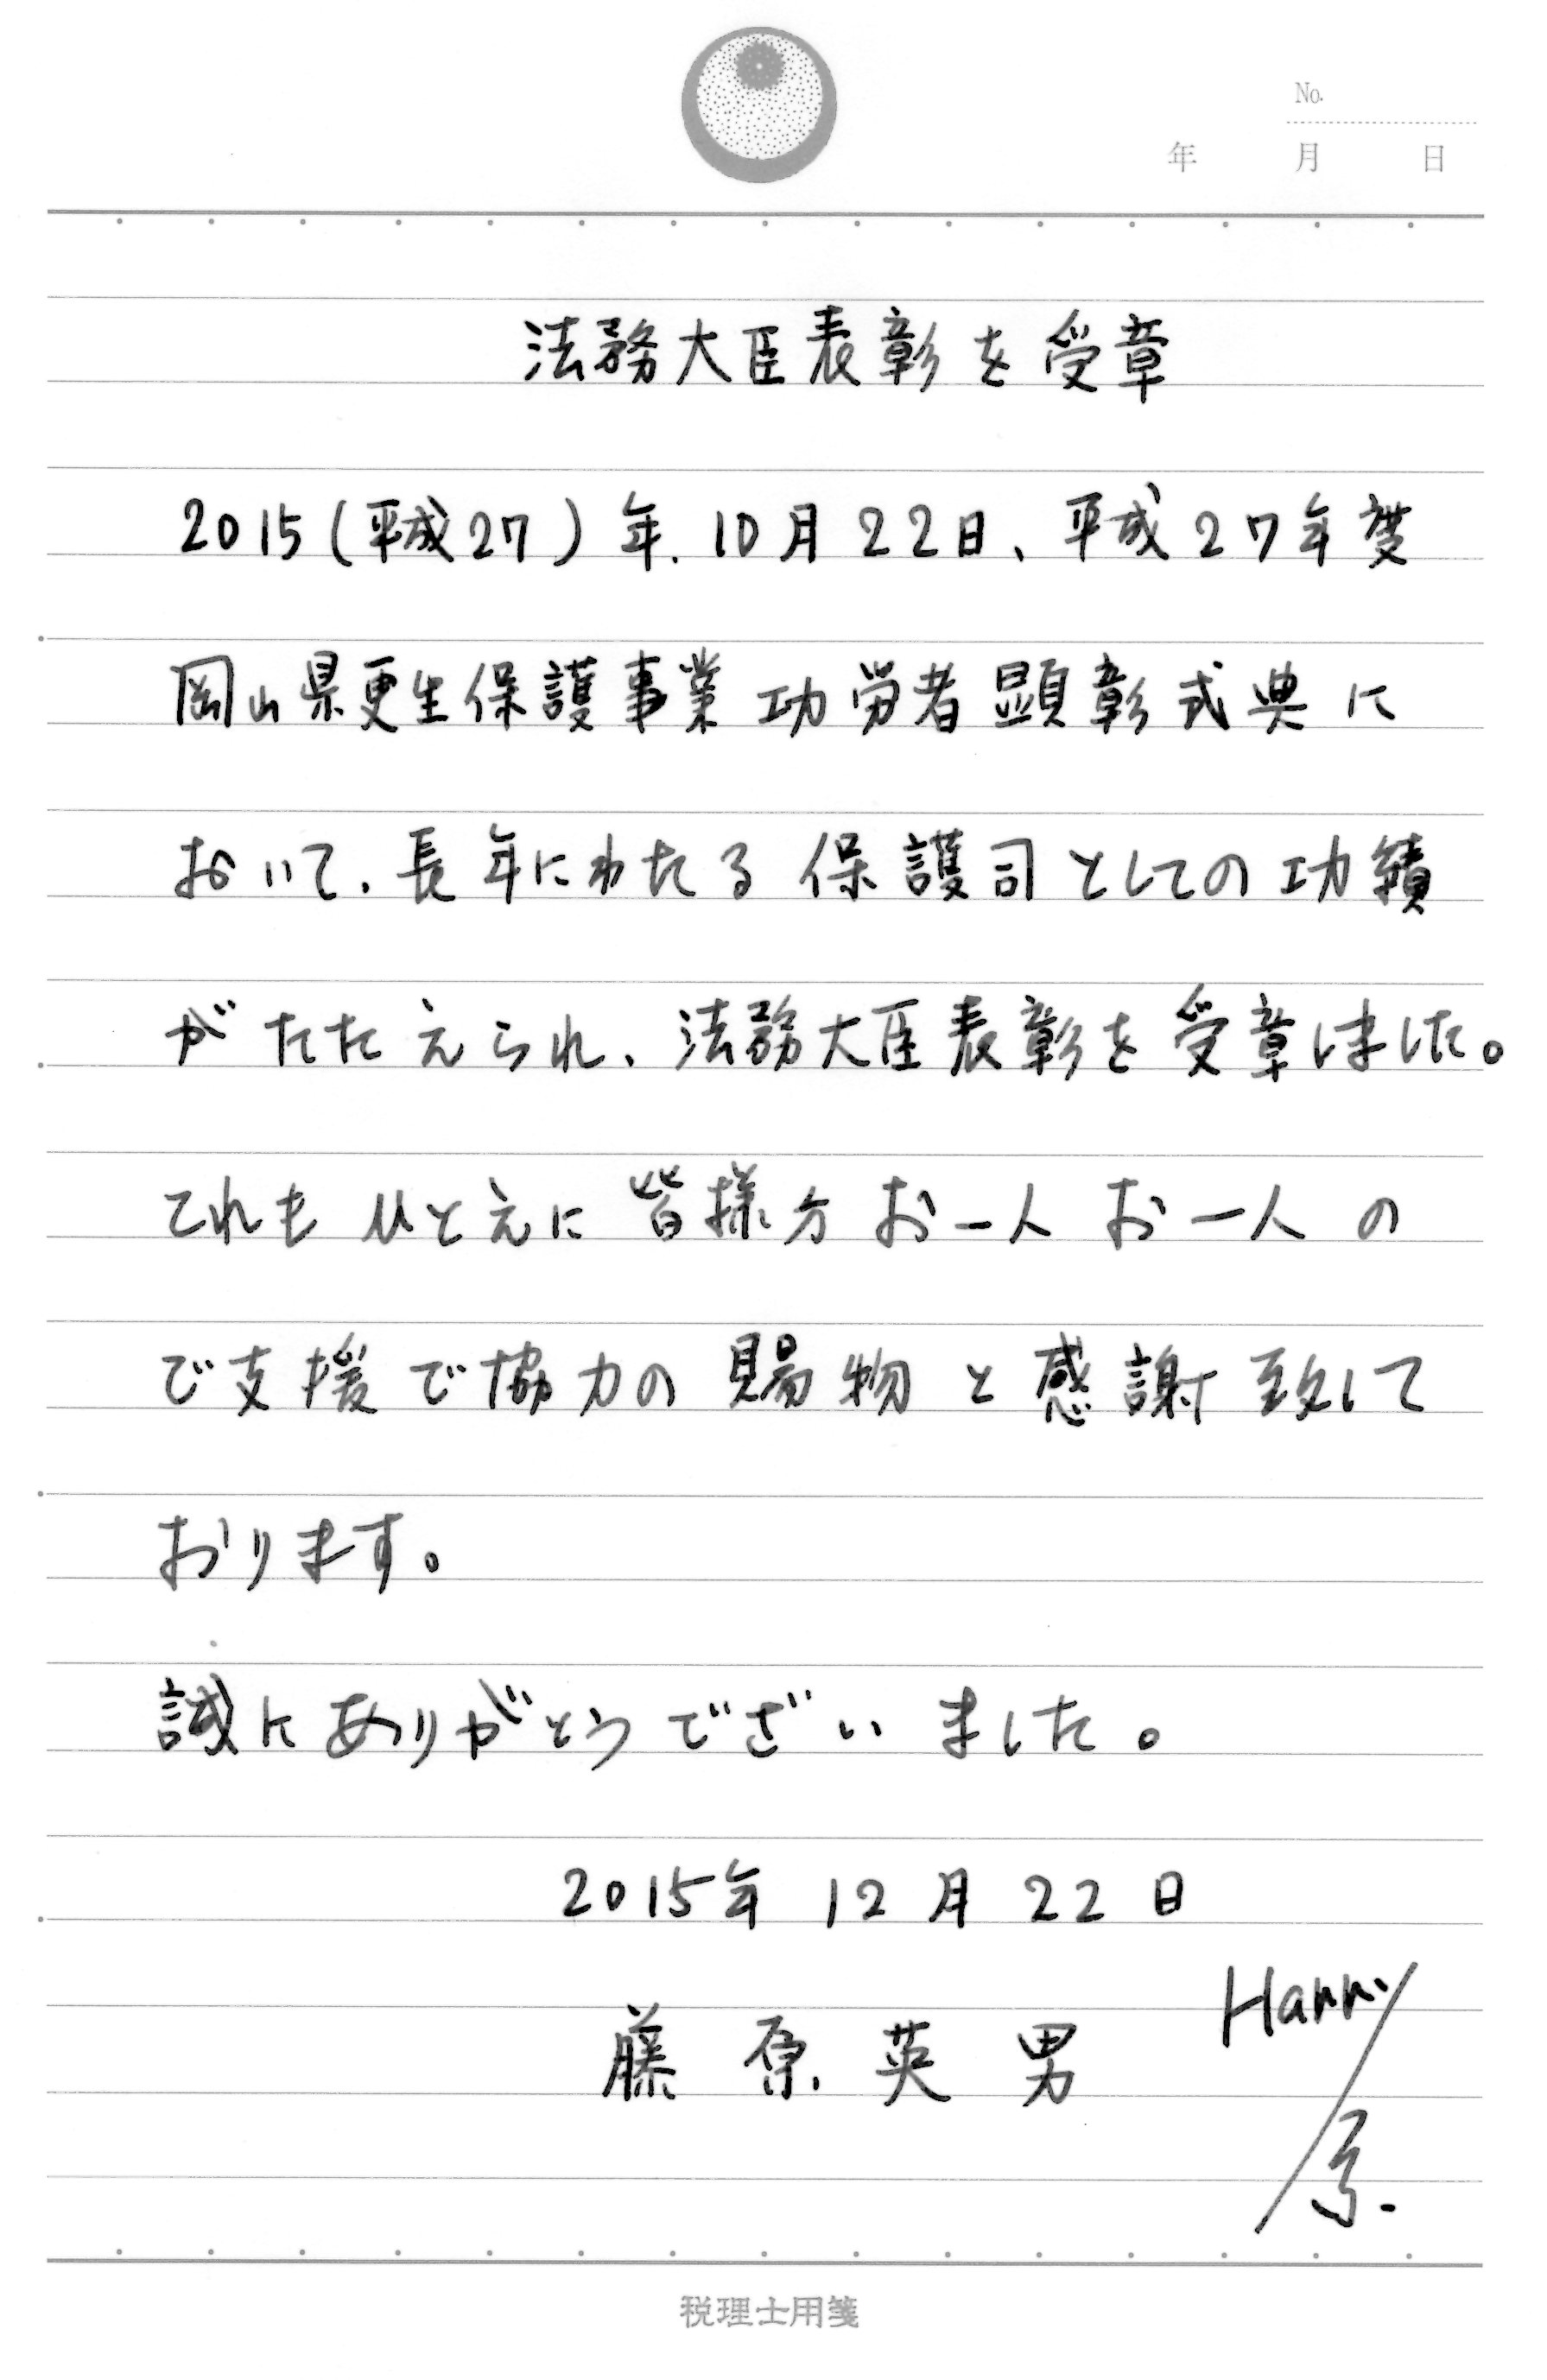 No.
年 月 日
法務大臣表彰を受章
2015(平成27)年.10月22日、平成27年度
岡山県更生保護事業功労者顕彰式典に
おいて、長年にわたる保護司としての功績
がたたえられ、法務大臣表彰を受章しました。
これもひとえに皆様方お一人お一人の
ご支援ご協力の賜物と感謝致して
おります。
誠にありがとうございました。
2015年12月22日
藤原英男
Harry
原
税理士用箋